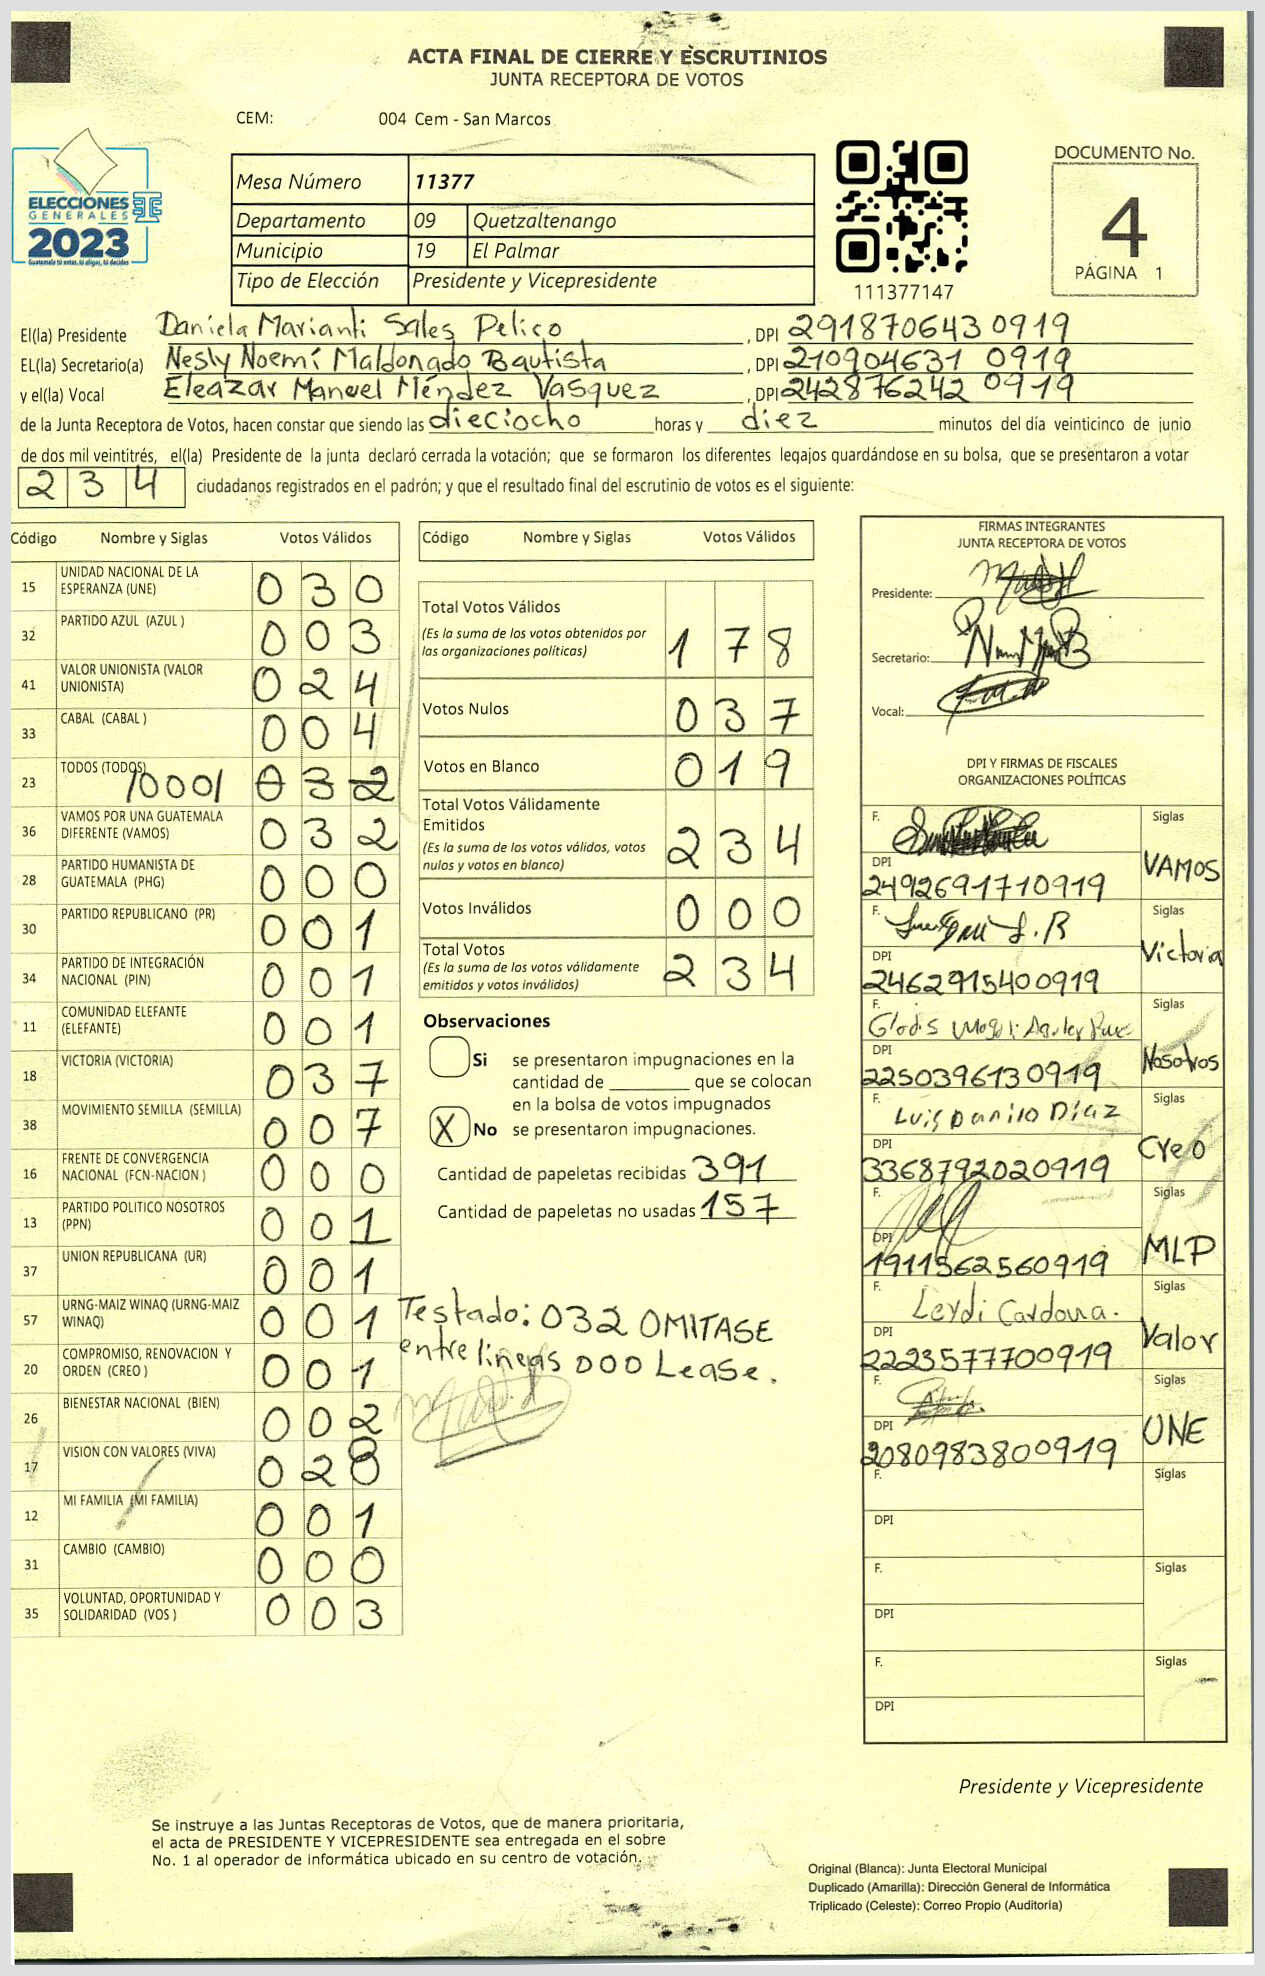 ACTA FINAL DE CIERRE Y ESCRUTINIOS
JUNTA RECEPTORA DE VOTOS
CEM: 004 Cem - San Marcos
ELECCIONES
GENERALES
2023
Guatemala tú entras, tú eliges, tú decides
Mesa Número 11377
Departamento 09 Quetzaltenango
Municipio 19 El Palmar
Tipo de Elección Presidente y Vicepresidente
111377147
DOCUMENTO No.
4
PÁGINA 1
El(la) Presidente Daniela Marianti Sales Pelico, DPI 291870643 0919
EL(la) Secretario(a) Nesly Noemí Maldonado Bautista, DPI 210904631 0919
y el(la) Vocal Eleazar Manuel Méndez Vasquez, DPI 242876242 0919
de la Junta Receptora de Votos, hacen constar que siendo las dieciocho horas y diez minutos del día veinticinco de junio
de dos mil veintitrés, el(la) Presidente de la junta declaró cerrada la votación; que se formaron los diferentes legajos guardándose en su bolsa, que se presentaron a votar
234 ciudadanos registrados en el padrón; y que el resultado final del escrutinio de votos es el siguiente:
Código Nombre y Siglas Votos Válidos
15 UNIDAD NACIONAL DE LA ESPERANZA (UNE) 030
32 PARTIDO AZUL (AZUL ) 003
41 VALOR UNIONISTA (VALOR UNIONISTA) 024
33 CABAL (CABAL ) 004
23 TODOS (TODOS) /000/ 032
36 VAMOS POR UNA GUATEMALA DIFERENTE (VAMOS) 032
28 PARTIDO HUMANISTA DE GUATEMALA (PHG) 000
30 PARTIDO REPUBLICANO (PR) 001
34 PARTIDO DE INTEGRACIÓN NACIONAL (PIN) 001
11 COMUNIDAD ELEFANTE (ELEFANTE) 001
18 VICTORIA (VICTORIA) 037
38 MOVIMIENTO SEMILLA (SEMILLA) 007
16 FRENTE DE CONVERGENCIA NACIONAL (FCN-NACION ) 000
13 PARTIDO POLITICO NOSOTROS (PPN) 001
37 UNION REPUBLICANA (UR) 001
57 URNG-MAIZ WINAQ (URNG-MAIZ WINAQ) 001
20 COMPROMISO, RENOVACION Y ORDEN (CREO ) 001
26 BIENESTAR NACIONAL (BIEN) 002
17 VISION CON VALORES (VIVA) 028
12 MI FAMILIA (MI FAMILIA) 001
31 CAMBIO (CAMBIO) 000
35 VOLUNTAD, OPORTUNIDAD Y SOLIDARIDAD (VOS ) 003
Código Nombre y Siglas Votos Válidos
Total Votos Válidos 178
(Es la suma de los votos obtenidos por
las organizaciones políticas)
Votos Nulos 037
Votos en Blanco 019
Total Votos Válidamente
Emitidos 234
(Es la suma de los votos válidos, votos
nulos y votos en blanco)
Votos Inválidos 000
Total Votos 234
(Es la suma de los votos válidamente
emitidos y votos inválidos)
Observaciones
Si se presentaron impugnaciones en la
cantidad de ________ que se colocan
en la bolsa de votos impugnados
X No se presentaron impugnaciones.
Cantidad de papeletas recibidas 391
Cantidad de papeletas no usadas 157
Testado: 032 OMITASE
entrelineas 000 Lease.
FIRMAS INTEGRANTES
JUNTA RECEPTORA DE VOTOS
Presidente:
Secretario:
Vocal:
DPI Y FIRMAS DE FISCALES
ORGANIZACIONES POLÍTICAS
F. Siglas VAMOS
DPI 2492691710919
F. Siglas Victoria
DPI 2462915400919
F. Glodis Siglas Nosotros
DPI 2250396130919
F. Luis Danilo Díaz Siglas Creo
DPI 3368792020919
F. Siglas MLP
DPI 1911562560919
F. Leydi Cardona. Siglas Valor
DPI 2223577700919
F. Siglas UNE
DPI 2080983800919
F. Siglas
DPI
F. Siglas
DPI
F. Siglas
DPI
Presidente y Vicepresidente
Se instruye a las Juntas Receptoras de Votos, que de manera prioritaria,
el acta de PRESIDENTE Y VICEPRESIDENTE sea entregada en el sobre
No. 1 al operador de informática ubicado en su centro de votación.
Original (Blanca): Junta Electoral Municipal
Duplicado (Amarilla): Dirección General de Informática
Triplicado (Celeste): Correo Propio (Auditoría)